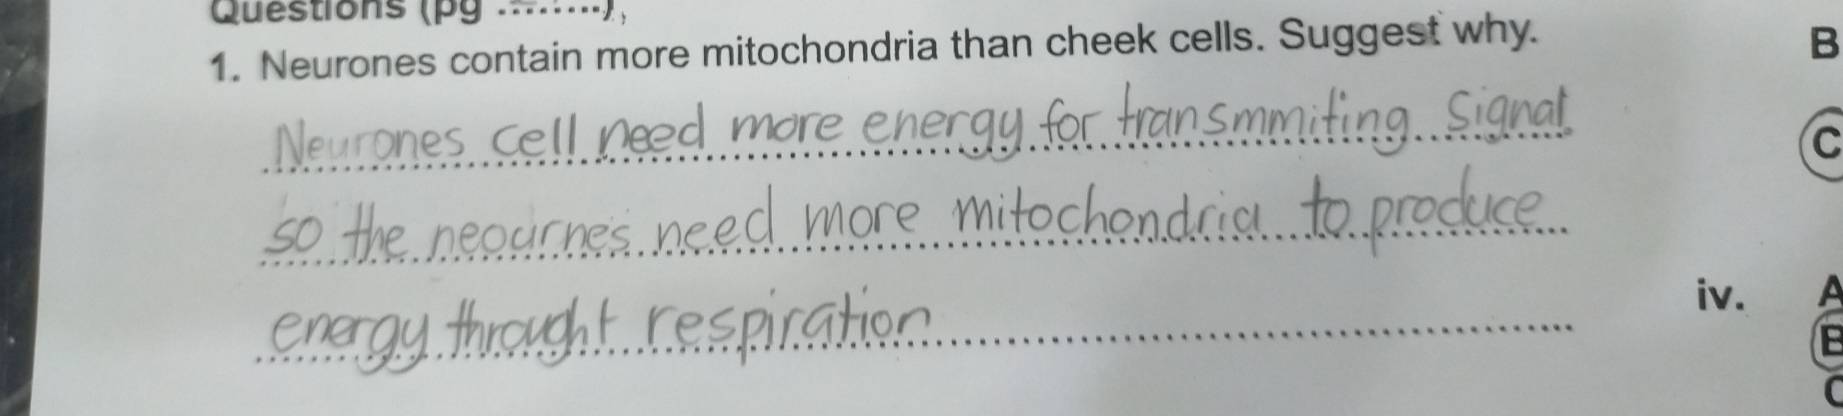 Questions (pg .........),
1. Neurones contain more mitochondria than cheek cells. Suggest why.
B
Neurones cell need more energy for transmmiting signal
C
so the neournes need more mitochondria to produce
iv. A
energy throught respiration
B
C